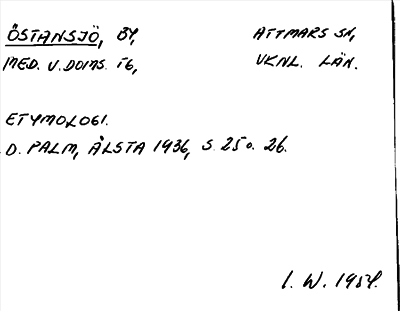 ÖSTANSJÖ, BY, ATTMARS SN,
MED. V. DOMS. TG, VKNL. LÄN.
ETYMOLOGI.
D. PALM, ÅLSTA 1936, S. 25 o. 26.
I. W. 1954.